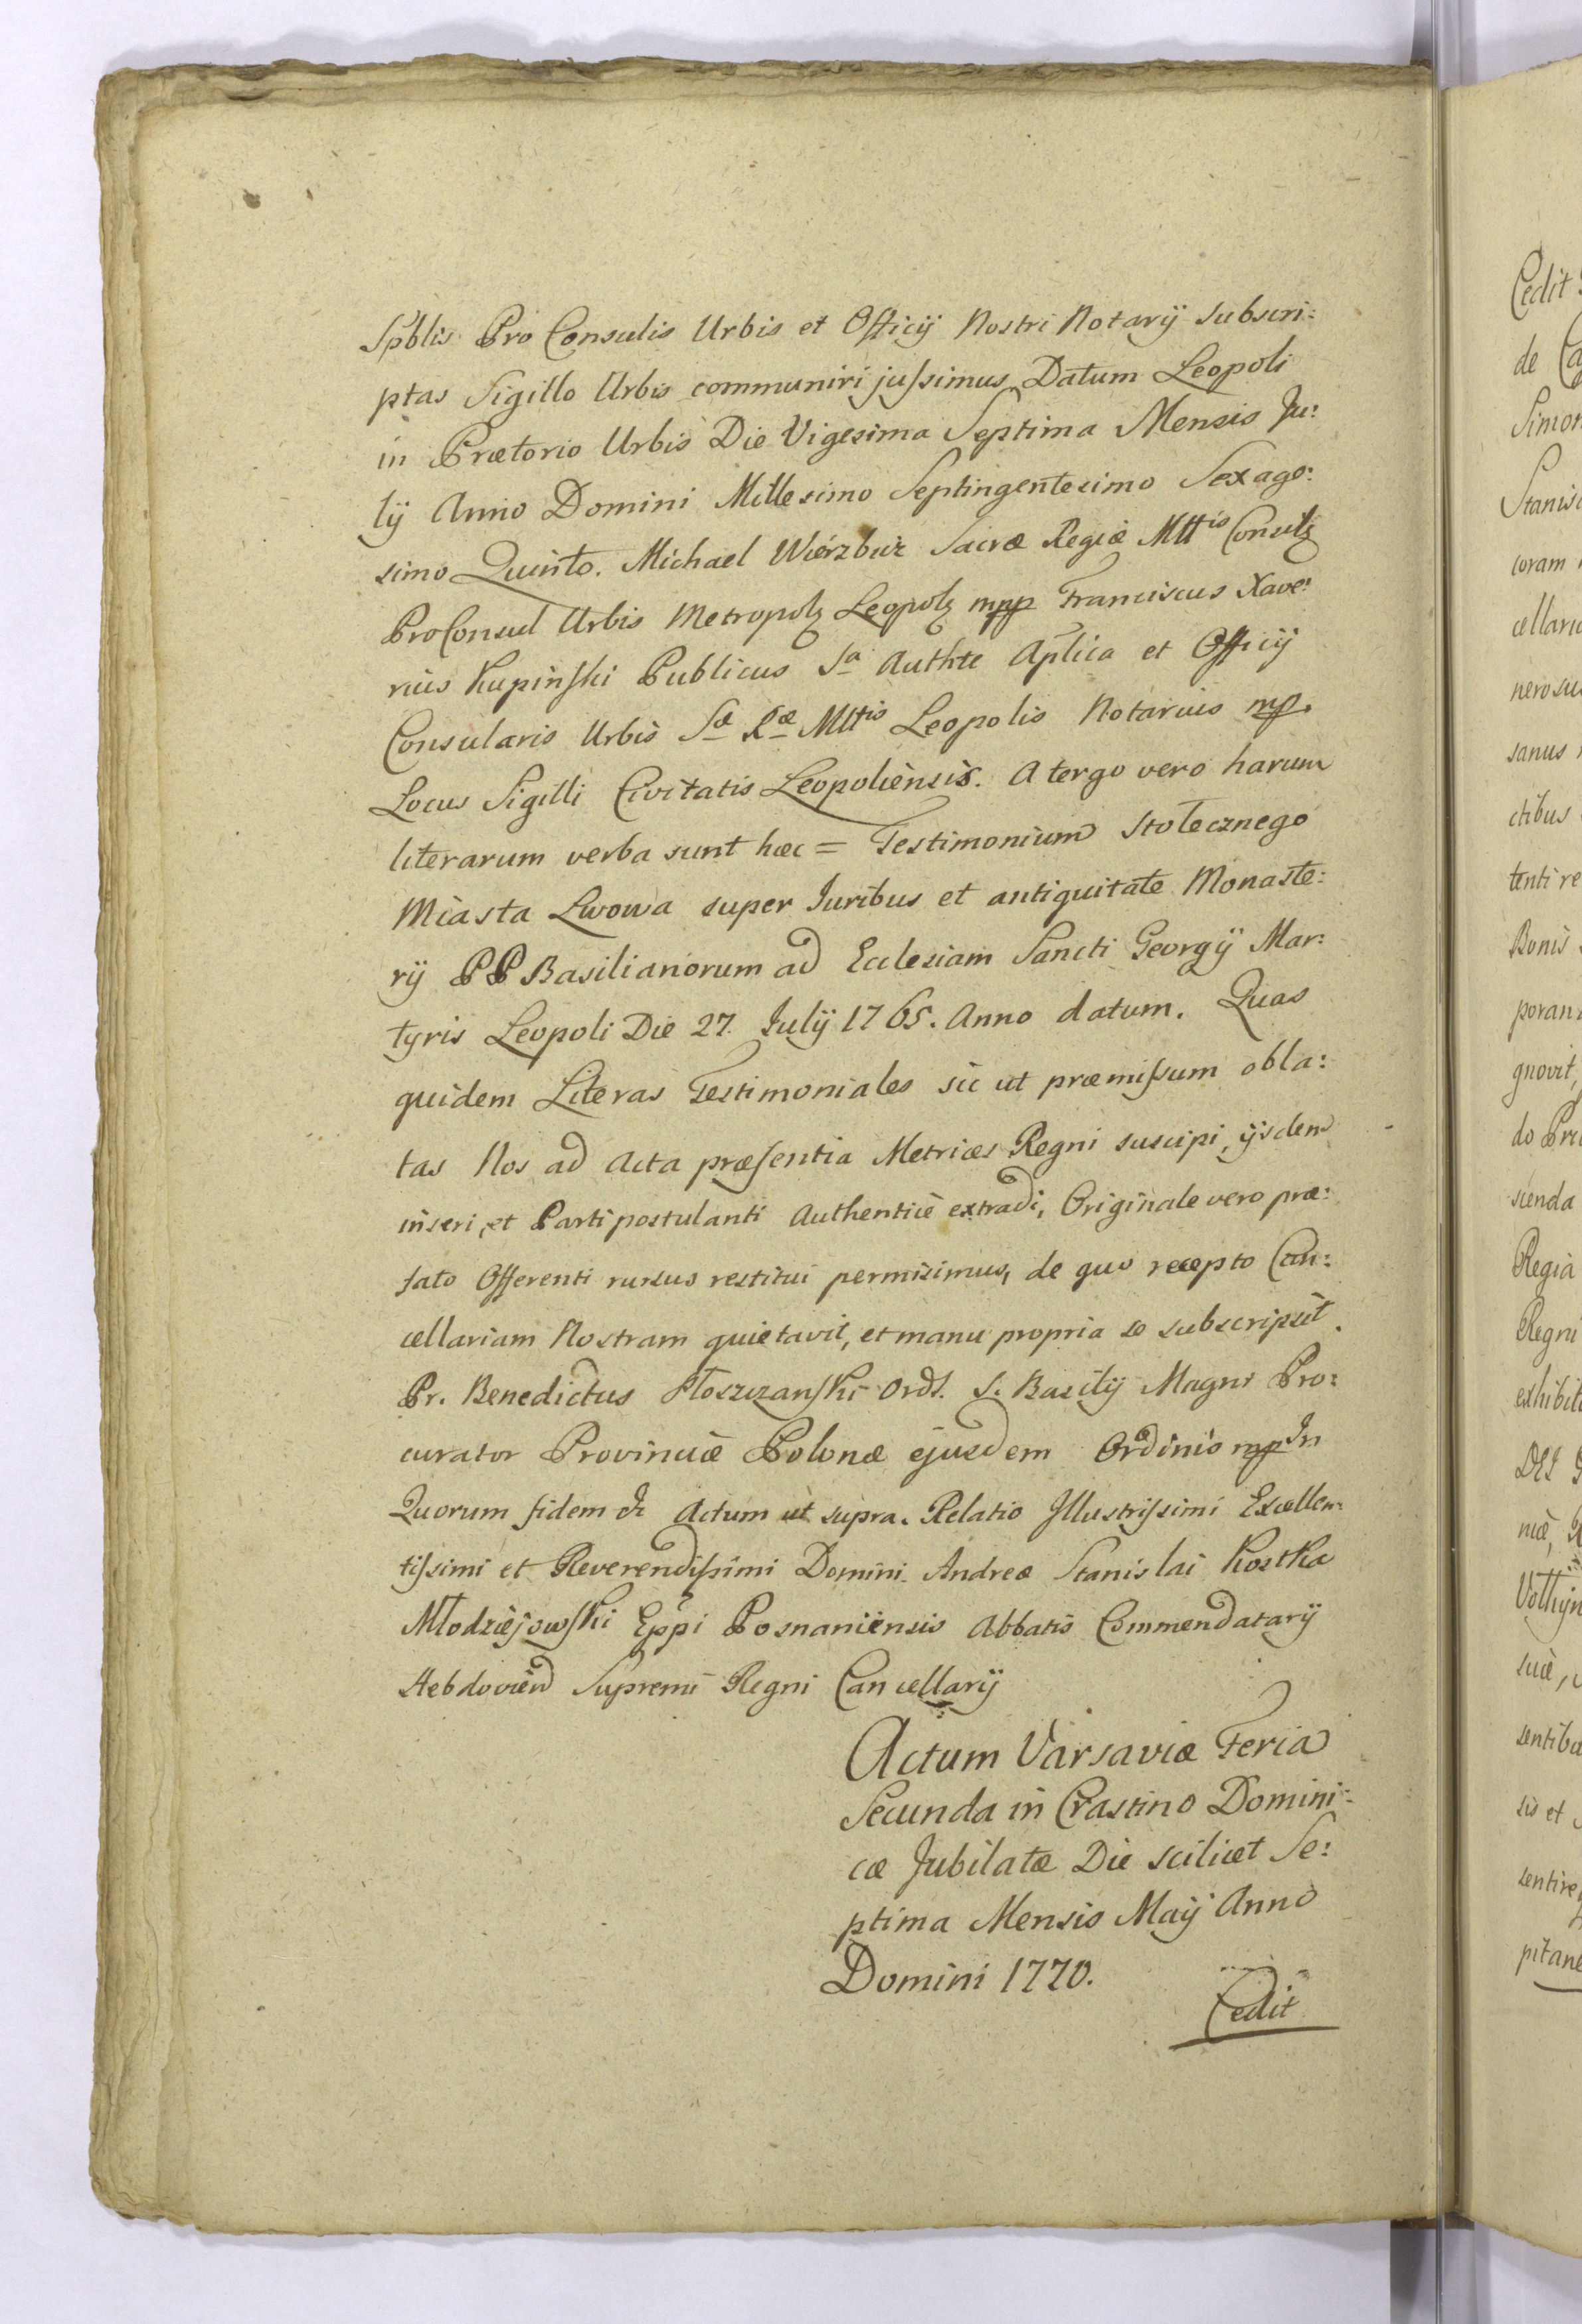 Spblis Pro Consulis Urbis et Officij Nostri Notarij subscri:
ptas Sigillo Urbis communiri jussimus Datum Leopoli
in Prætorio Urbis Die Vigesima Septima Mensis Ju:
lij Anno Domini Millesimo Septingentesimo Sexage:
simo Quinto. Michael Wierzbuz Sacræ Regiæ Mttis
ProConsul Urbis Metropolz Leopolz mpp Franciscus Xave:
rius Kupinski Publicus Sa Authte Aplica et Officij
Consularis Urbis Sæ Ræ Mttis Leopolis Notarius mp.
Locus Sigilli Civitatis Leopoliensis. A tergo vero harum
literarum verba sunt hæc = Testimonium Stołecznego
Miasta Lwowa super Juribus et antiquitate Monaste:
rij PP Basilianorum ad Ecclesiam Sancti Georgij Mar:
tyris Leopoli Die 27. Julij 1765. Anno datum. Quas
quidem Literas Testimoniales sic ut præmissum obla:
tas Nos ad Acta præsentia Metrices Regni suscipi, ijsdem
inseri, et Parti postulanti Authentice extradi, Originale vero præ:
fato Offerenti rursus restitui permisimus, de quo recepto Can:
cellariam Nostram quietavit, et manu propria se subscripsit.
Pr. Benedictus Płoszczanski Ords. S. Basilij Magni Pro:
curator Provinciæ Polonæ ejusdem Ordinis mp In
Quorum fidem &c Actum ut supra. Relatio Illustrissimi Excellen:
tissimi et Reverendissimi Domini Andreæ Stanislai Kostka
Młodziejowski Eppi Posnaniensis Abbatis Commendatarij
Hebdovien Supremi Regni Cancellarij
Actum Varsaviæ Feria
Secunda in Crastino Domini:
cæ Jubilatæ Die scilicet Se:
ptima Mensis Maij Anno
Domini 1770.
Cedit
Cedit
de
Simon
Stanis
coram
cellari
nerosu
sanus
ctibus
tenti re
Bonis
poran
gnovit,
do Pr
scienda
Regia
Regni
exhibit
DEI
niæ,
Volhyn
suæ,
sentibu
sis et
sentire
pitane